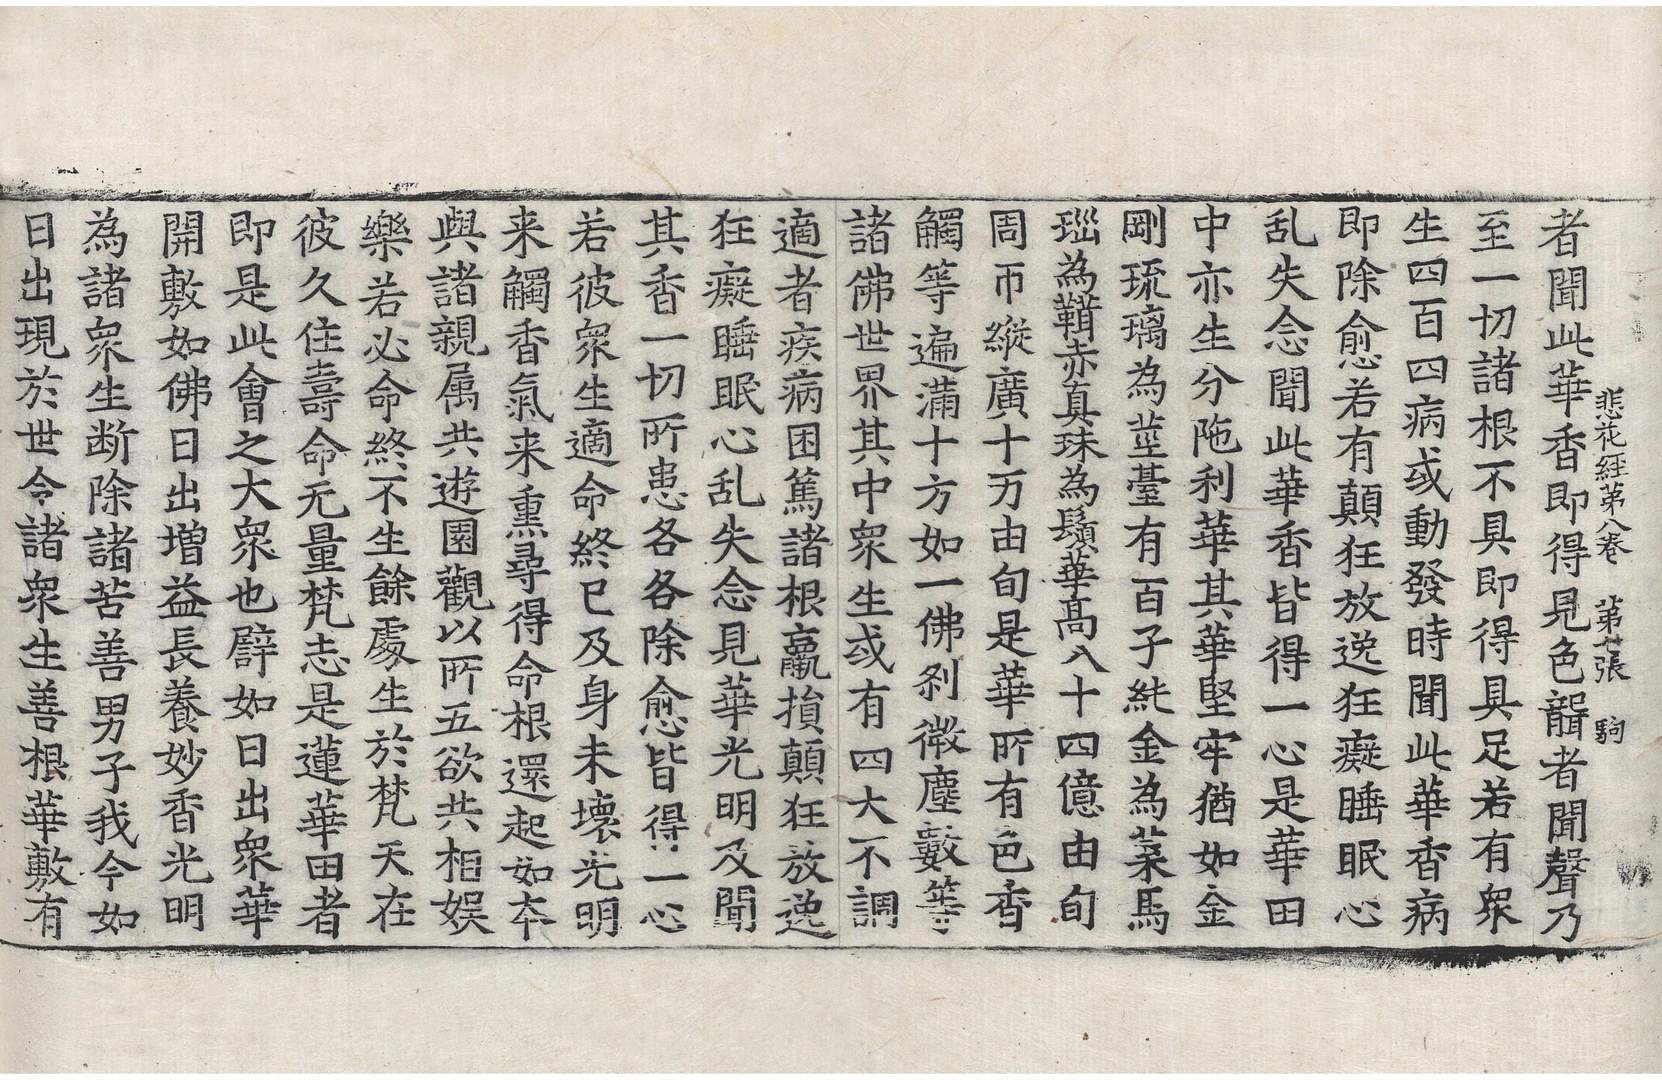 悲花經第八卷　第七張　駒
者聞此華香即得見色聾者聞聲乃
至一切諸根不具即得具足若有衆
生四百四病或動發時聞此華香病
即除愈若有顛狂放逸狂癡睡眠心
乱失念聞此華香皆得一心是華田
中亦生分陁利華其華堅牢猶如金
剛琉璃為莖臺有百子純金為葉馬
瑙為鞾赤真珠為鬚華髙八十四億由旬
周帀縱廣十万由旬是華所有色香
觸等遍滿十方如一佛刹微塵數等
諸佛世界其中衆生或有四大不調
適者疾病困篤諸根羸損顛狂放逸
狂癡睡眠心乱失念見華光明及聞
其香一切所患各各除愈皆得一心
若彼衆生適命終已及身未壞光明
来觸香氣来熏尋得命根還起如本
與諸親属共遊園觀以所五欲共相娱
樂若必命終不生餘處生於梵天在
彼久住壽命无量梵志是蓮華田者
即是此會之大衆也譬如日出衆華
開敷如佛日出增益長養妙香光明
為諸衆生断除諸苦善男子我今如
日出現於世令諸衆生善根華敷有